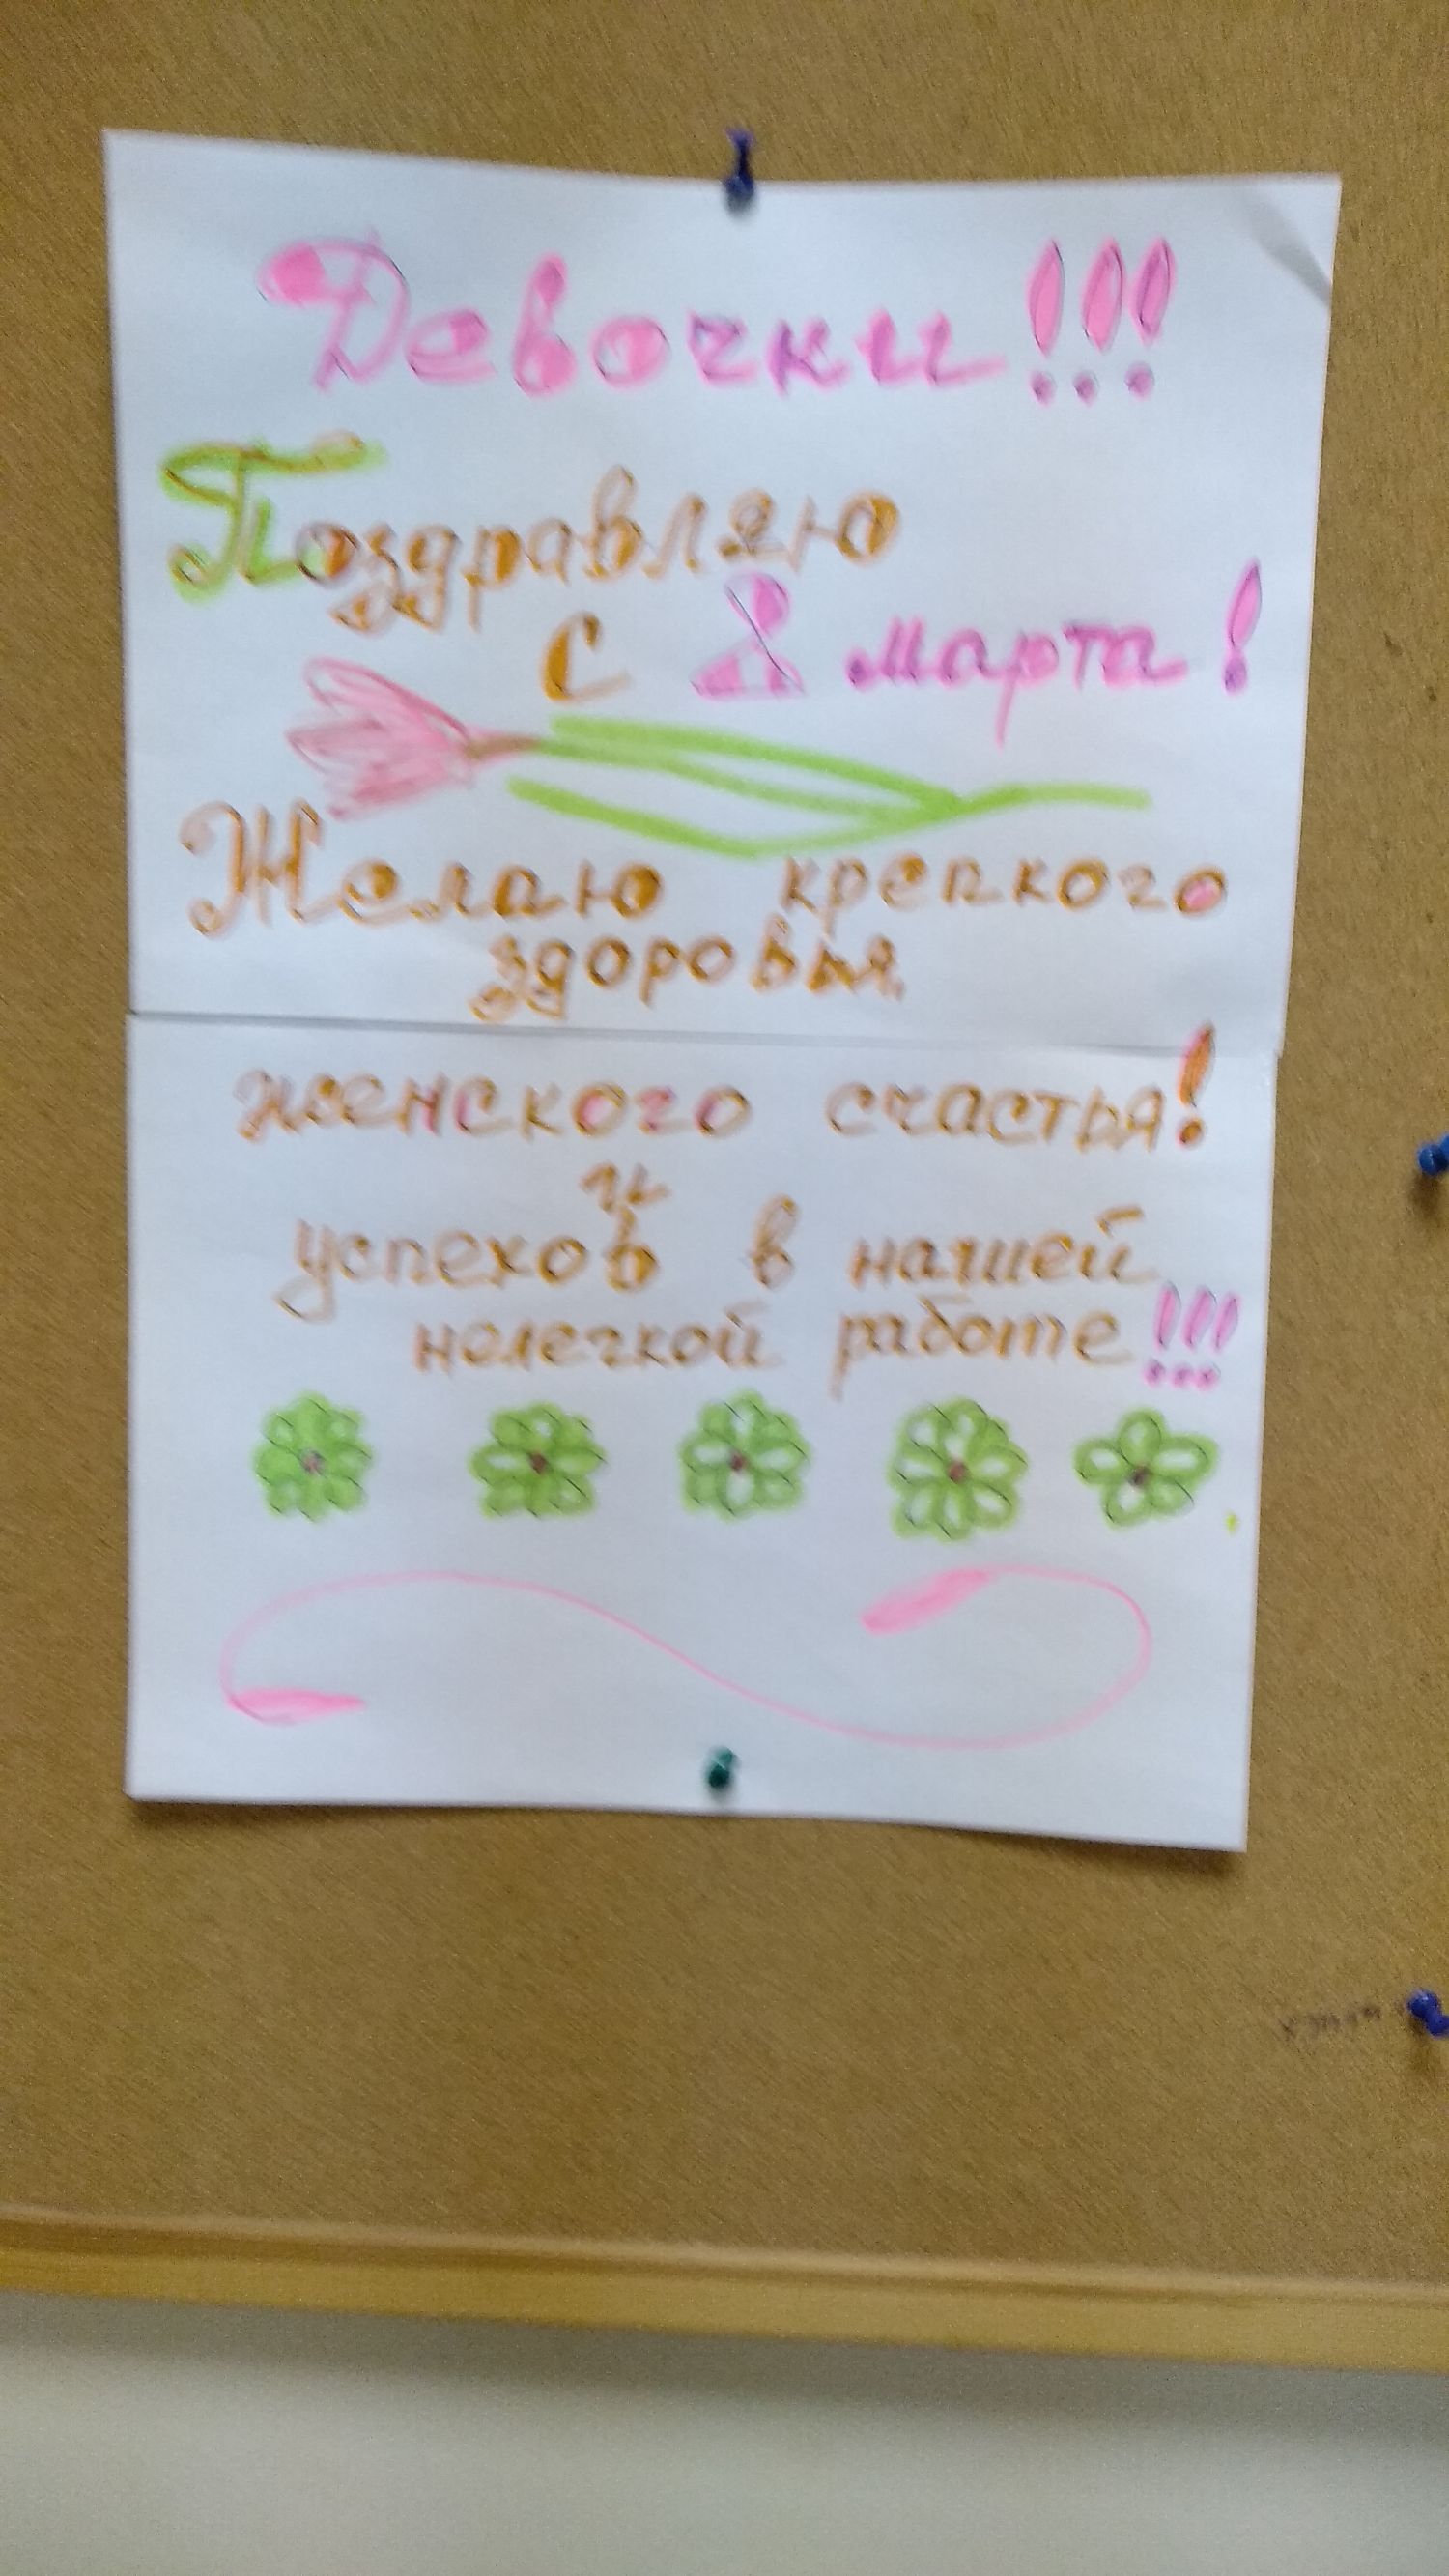 Девочки!!!
Поздравляю
с 8 марта!
Желаю крепкого
здоровья,
женского счастья!
и
успехов в нашей
нелегкой работе!!!